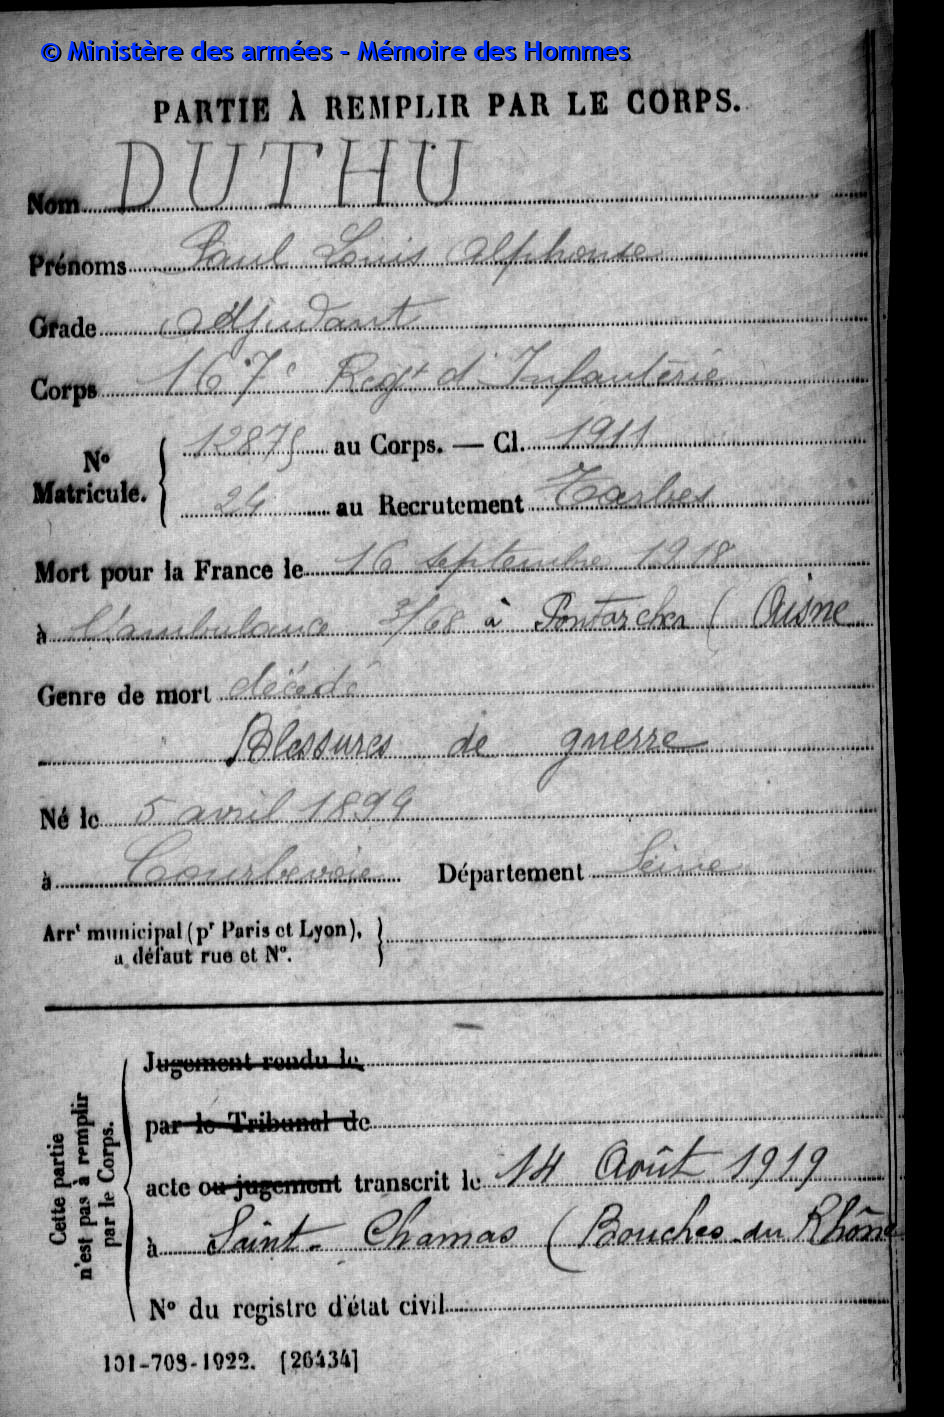 © Ministère des armées - Mémoire des Hommes
PARTIE À REMPLIR PAR LE CORPS.
Nom DUTHU
Prénoms Paul Louis Alphonse
Grade Adjudant
Corps 167e Regt d'Infanterie
No Matricule. { 12875 au Corps. — Cl. 1911
24 au Recrutement Tarbes
Mort pour la France le 16 septembre 1918
à l'ambulance 3/68 à Pontarcher (Aisne
Genre de mort décédé
Blessures de guerre
Né le 5 avril 1894
à Courbevoie Département Seine
Arrt municipal (pr Paris et Lyon), }
a défaut rue et No.
Cette partie n'est pas à remplir par le Corps.
Jugement rendu le
par le Tribunal de
acte ou jugement transcrit le 14 Août 1919
à Saint-Chamas (Bouches du Rhône
No du registre d'état civil
101-708-1922. [26434]